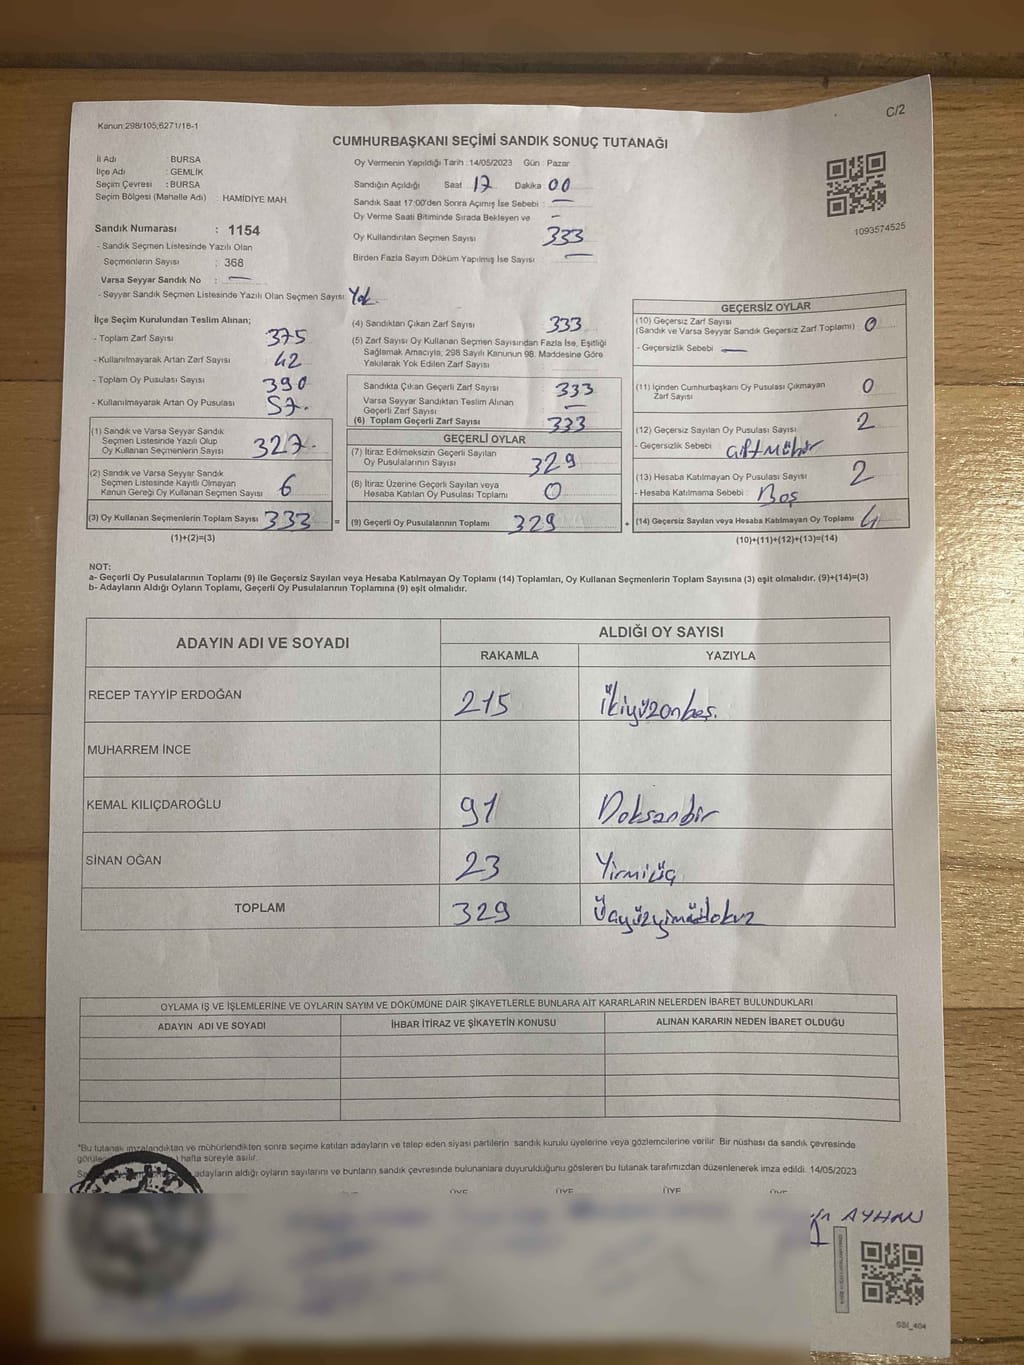 C/2
Kanun:298/105;6271/18-1
CUMHURBAŞKANI SEÇİMİ SANDIK SONUÇ TUTANAĞI
İl Adı : BURSA
İlçe Adı : GEMLİK
Seçim Çevresi : BURSA
Seçim Bölgesi (Mahalle Adı) : HAMİDİYE MAH.
Sandık Numarası : 1154
- Sandık Seçmen Listesinde Yazılı Olan
Seçmenlerin Sayısı : 368
Varsa Seyyar Sandık No : —
- Seyyar Sandık Seçmen Listesinde Yazılı Olan Seçmen Sayısı: Yok
Oy Vermenin Yapıldığı Tarih :14/05/2023 Gün : Pazar
Sandığın Açıldığı Saat 17 Dakika 00
Sandık Saat 17:00'den Sonra Açımış İse Sebebi : —
Oy Verme Saati Bitiminde Sırada Bekleyen ve –
Oy Kullandırılan Seçmen Sayısı 333
Birden Fazla Sayım Döküm Yapılmış İse Sayısı —
1093574525
İlçe Seçim Kurulundan Teslim Alınan;
- Toplam Zarf Sayısı 375
- Kullanılmayarak Artan Zarf Sayısı 42
- Toplam Oy Pusulası Sayısı 390
- Kullanılmayarak Artan Oy Pusulası 57.
(1) Sandık ve Varsa Seyyar Sandık
Seçmen Listesinde Yazılı Olup
Oy Kullanan Seçmenlerin Sayısı 327.
(2) Sandık ve Varsa Seyyar Sandık
Seçmen Listesinde Kayıtlı Olmayan
Kanun Gereği Oy Kullanan Seçmen Sayısı 6
(3) Oy Kullanan Seçmenlerin Toplam Sayısı 333 =
(1)+(2)=(3)
(4) Sandıktan Çıkan Zarf Sayısı 333
(5) Zarf Sayısı Oy Kullanan Seçmen Sayısından Fazla İse, Eşitliği
Sağlamak Amacıyla; 298 Sayılı Kanunun 98. Maddesine Göre
Yakılarak Yok Edilen Zarf Sayısı
Sandıkta Çıkan Geçerli Zarf Sayısı 333
Varsa Seyyar Sandıktan Teslim Alınan
Geçerli Zarf Sayısı —
(6) Toplam Geçerli Zarf Sayısı 333
GEÇERLİ OYLAR
(7) İtiraz Edilmeksizin Geçerli Sayılan
Oy Pusulalarının Sayısı 329
(8) İtiraz Üzerine Geçerli Sayılan veya
Hesaba Katılan Oy Pusulası Toplamı 0
(9) Geçerli Oy Pusulalarının Toplamı 329 +
GEÇERSİZ OYLAR
(10) Geçersiz Zarf Sayısı
(Sandık ve Varsa Seyyar Sandık Geçersiz Zarf Toplamı) 0
- Geçersizlik Sebebi : —
(11) İçinden Cumhurbaşkanı Oy Pusulası Çıkmayan
Zarf Sayısı 0
(12) Geçersiz Sayılan Oy Pusulası Sayısı 2
- Geçersizlik Sebebi : çift mühür
(13) Hesaba Katılmayan Oy Pusulası Sayısı 2
- Hesaba Katılmama Sebebi : Boş
(14) Geçersiz Sayılan veya Hesaba Katılmayan Oy Toplamı 4
(10)+(11)+(12)+(13)=(14)
NOT:
a- Geçerli Oy Pusulalarının Toplamı (9) ile Geçersiz Sayılan veya Hesaba Katılmayan Oy Toplamı (14) Toplamları, Oy Kullanan Seçmenlerin Toplam Sayısına (3) eşit olmalıdır. (9)+(14)=(3)
b- Adayların Aldığı Oyların Toplamı, Geçerli Oy Pusulalarının Toplamına (9) eşit olmalıdır.
ADAYIN ADI VE SOYADI
ALDIĞI OY SAYISI
RAKAMLA YAZIYLA
RECEP TAYYİP ERDOĞAN 215 İkiyüzonbeş.
MUHARREM İNCE
KEMAL KILIÇDAROĞLU 91 Doksanbir
SİNAN OĞAN 23 Yirmiüç
TOPLAM 329
OYLAMA İŞ VE İŞLEMLERİNE VE OYLARIN SAYIM VE DÖKÜMÜNE DAİR ŞİKAYETLERLE BUNLARA AİT KARARLARIN NELERDEN İBARET BULUNDUKLARI
ADAYIN ADI VE SOYADI İHBAR İTİRAZ VE ŞİKAYETİN KONUSU ALINAN KARARIN NEDEN İBARET OLDUĞU
*Bu tutanak imzalandıktan ve mühürlendikten sonra seçime katılan adayların ve talep eden siyasi partilerin sandık kurulu üyelerine veya gözlemcilerine verilir. Bir nüshası da sandık çevresinde
hafta süreyle asılır.
adayların aldığı oyların sayılarını ve bunların sandık çevresinde bulunanlara duyurulduğunu gösteren bu tutanak tarafımızdan düzenlenerek imza edildi. 14/05/2023
ÜYE ÜYE ÜYE ÜYE
AYHAN
SBİ_404